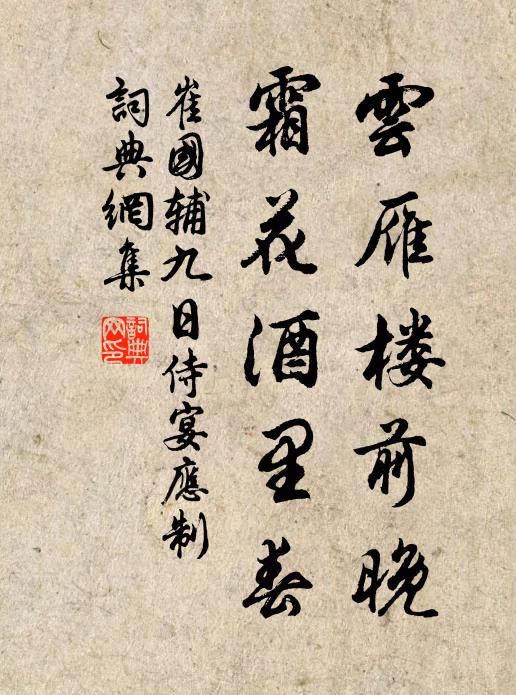 雲雁楼前晚
霜花酒里春
崔國辅九日侍宴應制
詞典網集
詞典
网印